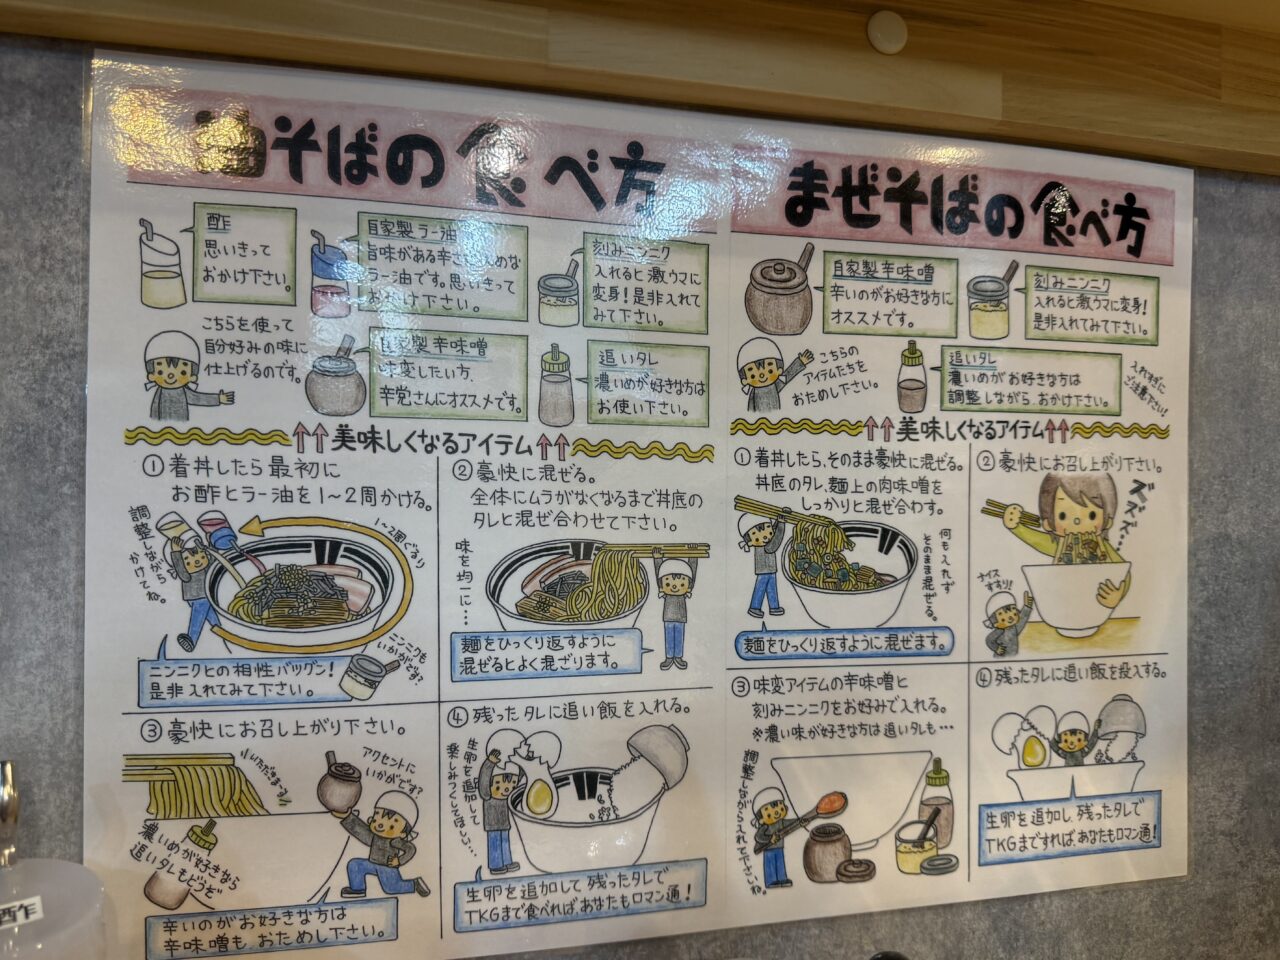 油そばの食べ方
酢
思いきって
おかけ下さい。
自家製ラー油
旨味がある辛さ
ラー油です。思いきって
おかけ下さい。
刻みニンニク
入れると激ウマに
変身!是非入れて
みて下さい。
こちらを使って
自分好みの味に
仕上げるのです。
自家製辛味噌
味変したい方、
辛党さんにオススメです。
追いタレ
濃いめが好きな方は
お使い下さい。
↑↑美味しくなるアイテム↑↑
①着丼したら最初に
お酢とラー油を1~2周かける。
調整しながら
かけてね。
1~2周ぐるり
ニンニクも
いかがです?
ニンニクとの相性バツグン!
是非入れてみて下さい。
②豪快に混ぜる。
全体にムラがなくなるまで丼底の
タレと混ぜ合わせて下さい。
味を均一に…
麺をひっくり返すように
混ぜるとよく混ざります。
③豪快にお召し上がり下さい。
いただきまーす
アクセントに
いかがです?
濃いめが好きなら
追いタレもどうぞ
辛いのがお好きな方は
辛味噌も、おためし下さい。
④残ったタレに追い飯を入れる。
生卵を追加して
楽しみつくしてほしい…
生卵を追加して残ったタレで
TKGまで食べれば、あなたもロマン通!
まぜそばの食べ方
自家製辛味噌
辛いのがお好きな方に
オススメです。
刻みニンニク
入れると激ウマに変身!
是非入れてみて下さい。
こちらの
アイテムたちを
おためし下さい。
追いタレ
濃いめがお好きな方は
調整しながら、おかけ下さい。
入れすぎに
ご注意下さい!
↑↑美味しくなるアイテム↑↑
①着丼したら、そのまま豪快に混ぜる。
丼底のタレ、麺上の肉味噌を
しっかりと混ぜ合わす。
何も入れず
そのまま混ぜる。
麺をひっくり返すように混ぜます。
②豪快にお召し上がり下さい。
ズズズ…
ナイス
すすり!
③味変アイテムの辛味噌と
刻みニンニクをお好みで入れる。
※濃い味が好きな方は追いタレも…
調整しながら入れて下さいね。
④残ったタレに追い飯を投入する。
生卵を追加し、残ったタレで
TKGまですれば、あなたもロマン通!
酢